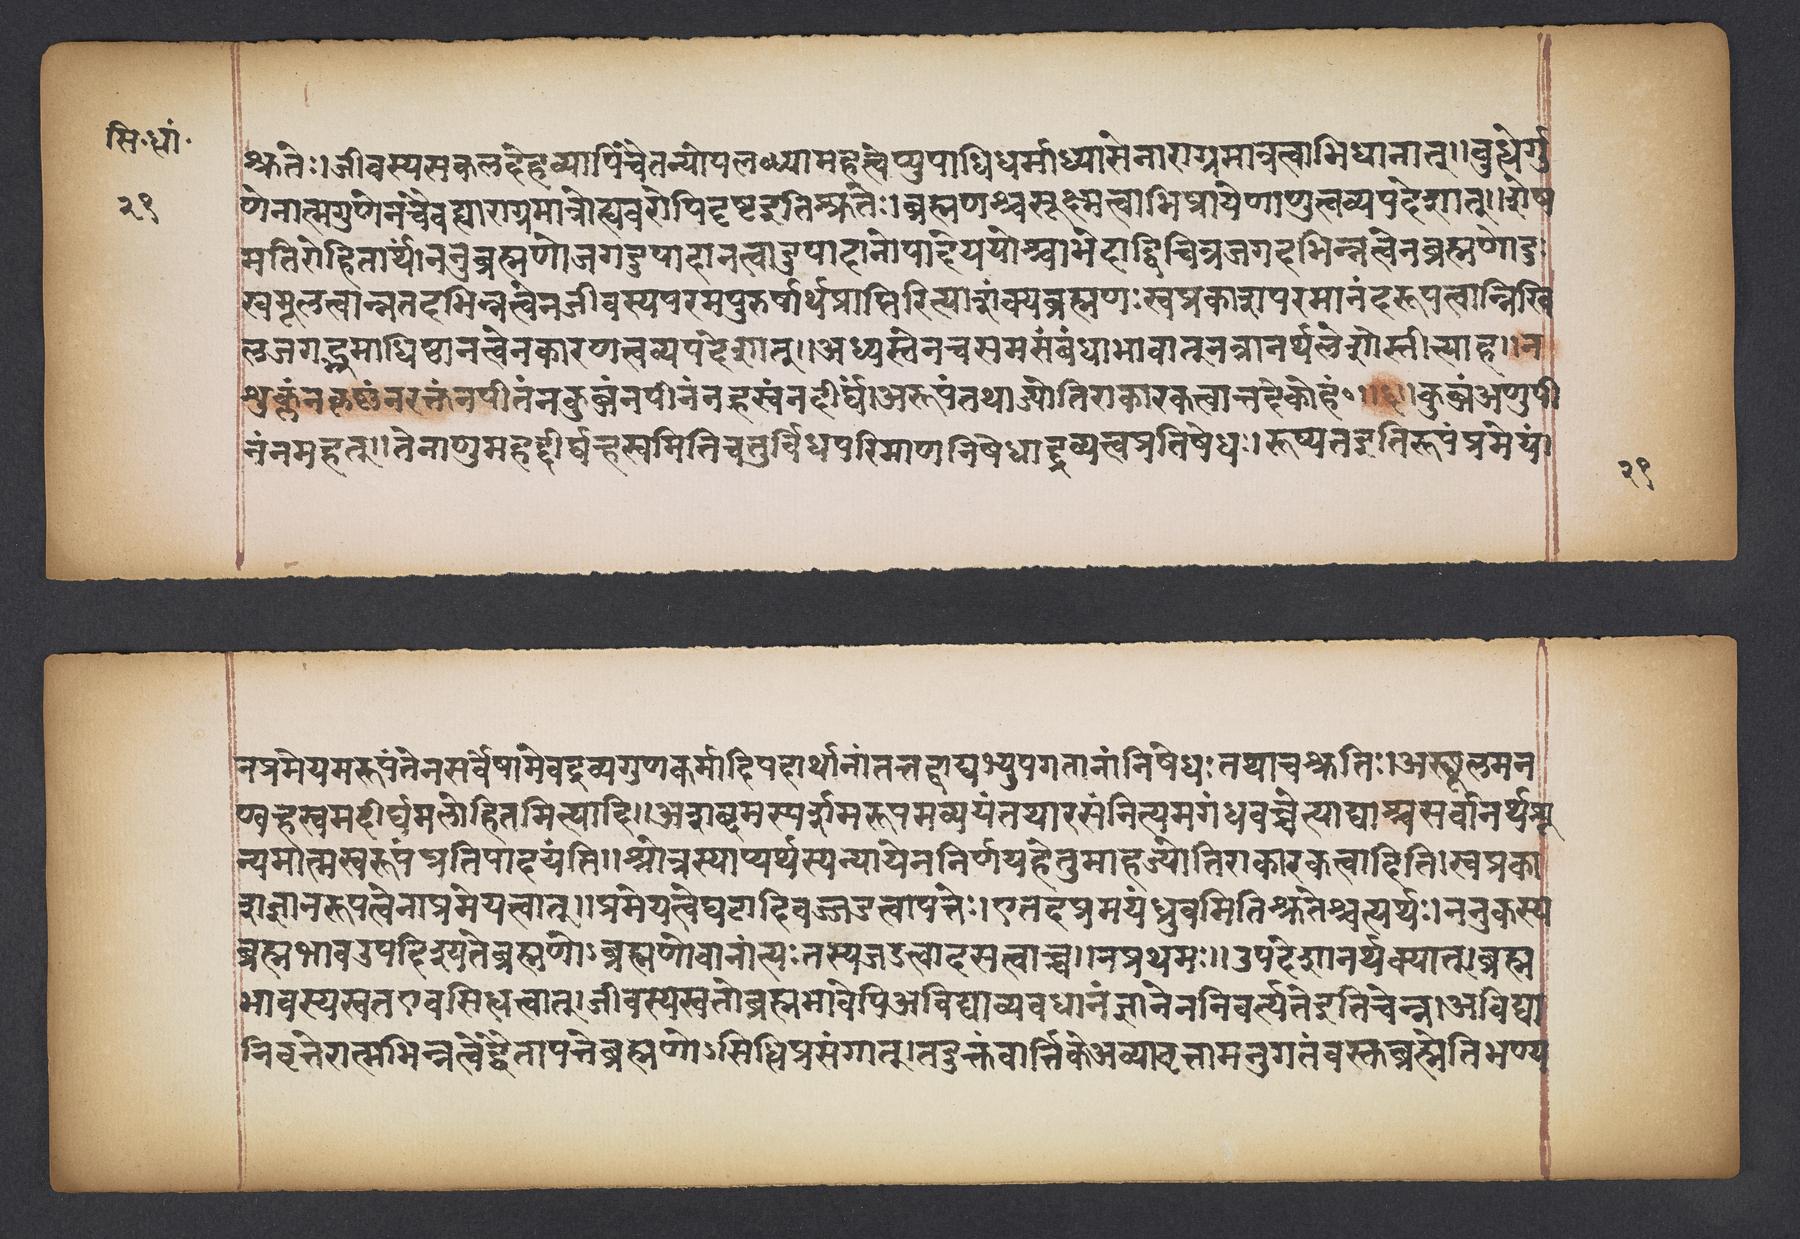 सि.ध्यां.
२९
श्रुतेः।जीवस्यसकलदेहव्यापिचैतन्योपलब्ध्यामहत्त्वेप्युपाधिधर्माध्यासेनाराग्रमात्रत्वाभिधानात्॥बुद्धेर्गु
णेनात्मगुणेनचैवह्याराग्रमात्रोह्यवरोपिदृष्टइतिश्रुतेः।ब्रह्मणश्चसूक्ष्मत्वाभिप्रायेणाणुत्वव्यपदेशात्॥शेष
मतिरोहितार्थंननुब्रह्मणोजगदुपादानत्वादुपादानोपादेययोश्चाभेदाद्विचित्रजगदभिन्नत्वेनब्रह्मणोदुः
खमूलत्वान्नतदभिन्नत्वेनजीवस्यपरमपुरुषार्थप्राप्तिरित्याशंक्यब्रह्मणःस्वप्रकाशपरमानंदरूपत्वान्निखि
लजगद्भ्रमाधिष्ठानत्वेनकारणत्वव्यपदेशात्॥अध्यस्तेनचसमंसंबंधाभावात्नतत्रानर्थलेशोस्तीत्याह॥न
शुक्लंनकृष्णंनरक्तंनपीतंनकुब्जंनपीनंनह्रस्वंनदीर्घं।अरूपंतथाज्योतिराकारकत्वात्तदेकोहं॰॥७॥कुब्जंअणुपी
नंनमहत्॥तेनाणुमहद्दीर्घह्रस्वमितिचतुर्विधपरिमाणनिषेधाद्द्रव्यत्वप्रतिषेधः।रूप्यतइतिरूपंप्रमेयं।
२९
नप्रमेयमरूपंतेनसर्वेषामेवद्रव्यगुणकर्मादिपदार्थानांतत्तद्वाद्यभ्युपगतानांनिषेधःतथाचश्रुतिः।अस्थूलमन
ण्वह्रस्वमदीर्घमलोहितमित्यादि॥अशब्दमस्पर्शमरूपमव्ययंतथारसंनित्यमगंधवच्चेत्याद्याश्चसर्वानर्थशू
न्यमात्मस्वरूपंप्रतिपादयंति॥श्रोत्रस्याप्यर्थस्यन्यायेननिर्णयहेतुमाहज्योतिराकारकत्वादिति।स्वप्रका
शज्ञानरूपत्वेनाप्रमेयत्वात्॥प्रमेयत्वेघटादिवज्जडत्वापत्तेः।एतदप्रमयंध्रुवमितिश्रुतेश्चेत्यर्थः।ननुकस्य
ब्रह्मभावउपदिश्यतेब्रह्मणोऽब्रह्मणोवानांत्यःतस्यजडत्वादसत्वाच्च॥नप्रथमः॥उपदेशानर्थक्यात्।ब्रह्म
भावस्यस्वतएवसिद्धत्वात्।जीवस्यस्वतोब्रह्मभावेपिअविद्याव्यवधानंज्ञानेननिवर्त्यतेइतिचेन्न।अविद्या
निवृत्तेरात्मभिन्नत्वेद्वैतापत्तेब्रह्मणोऽसिद्धिप्रसंगात्।तदुक्तंवार्त्तिकेअव्यावृत्ताननुगतंवस्तुब्रह्मेतिभण्य